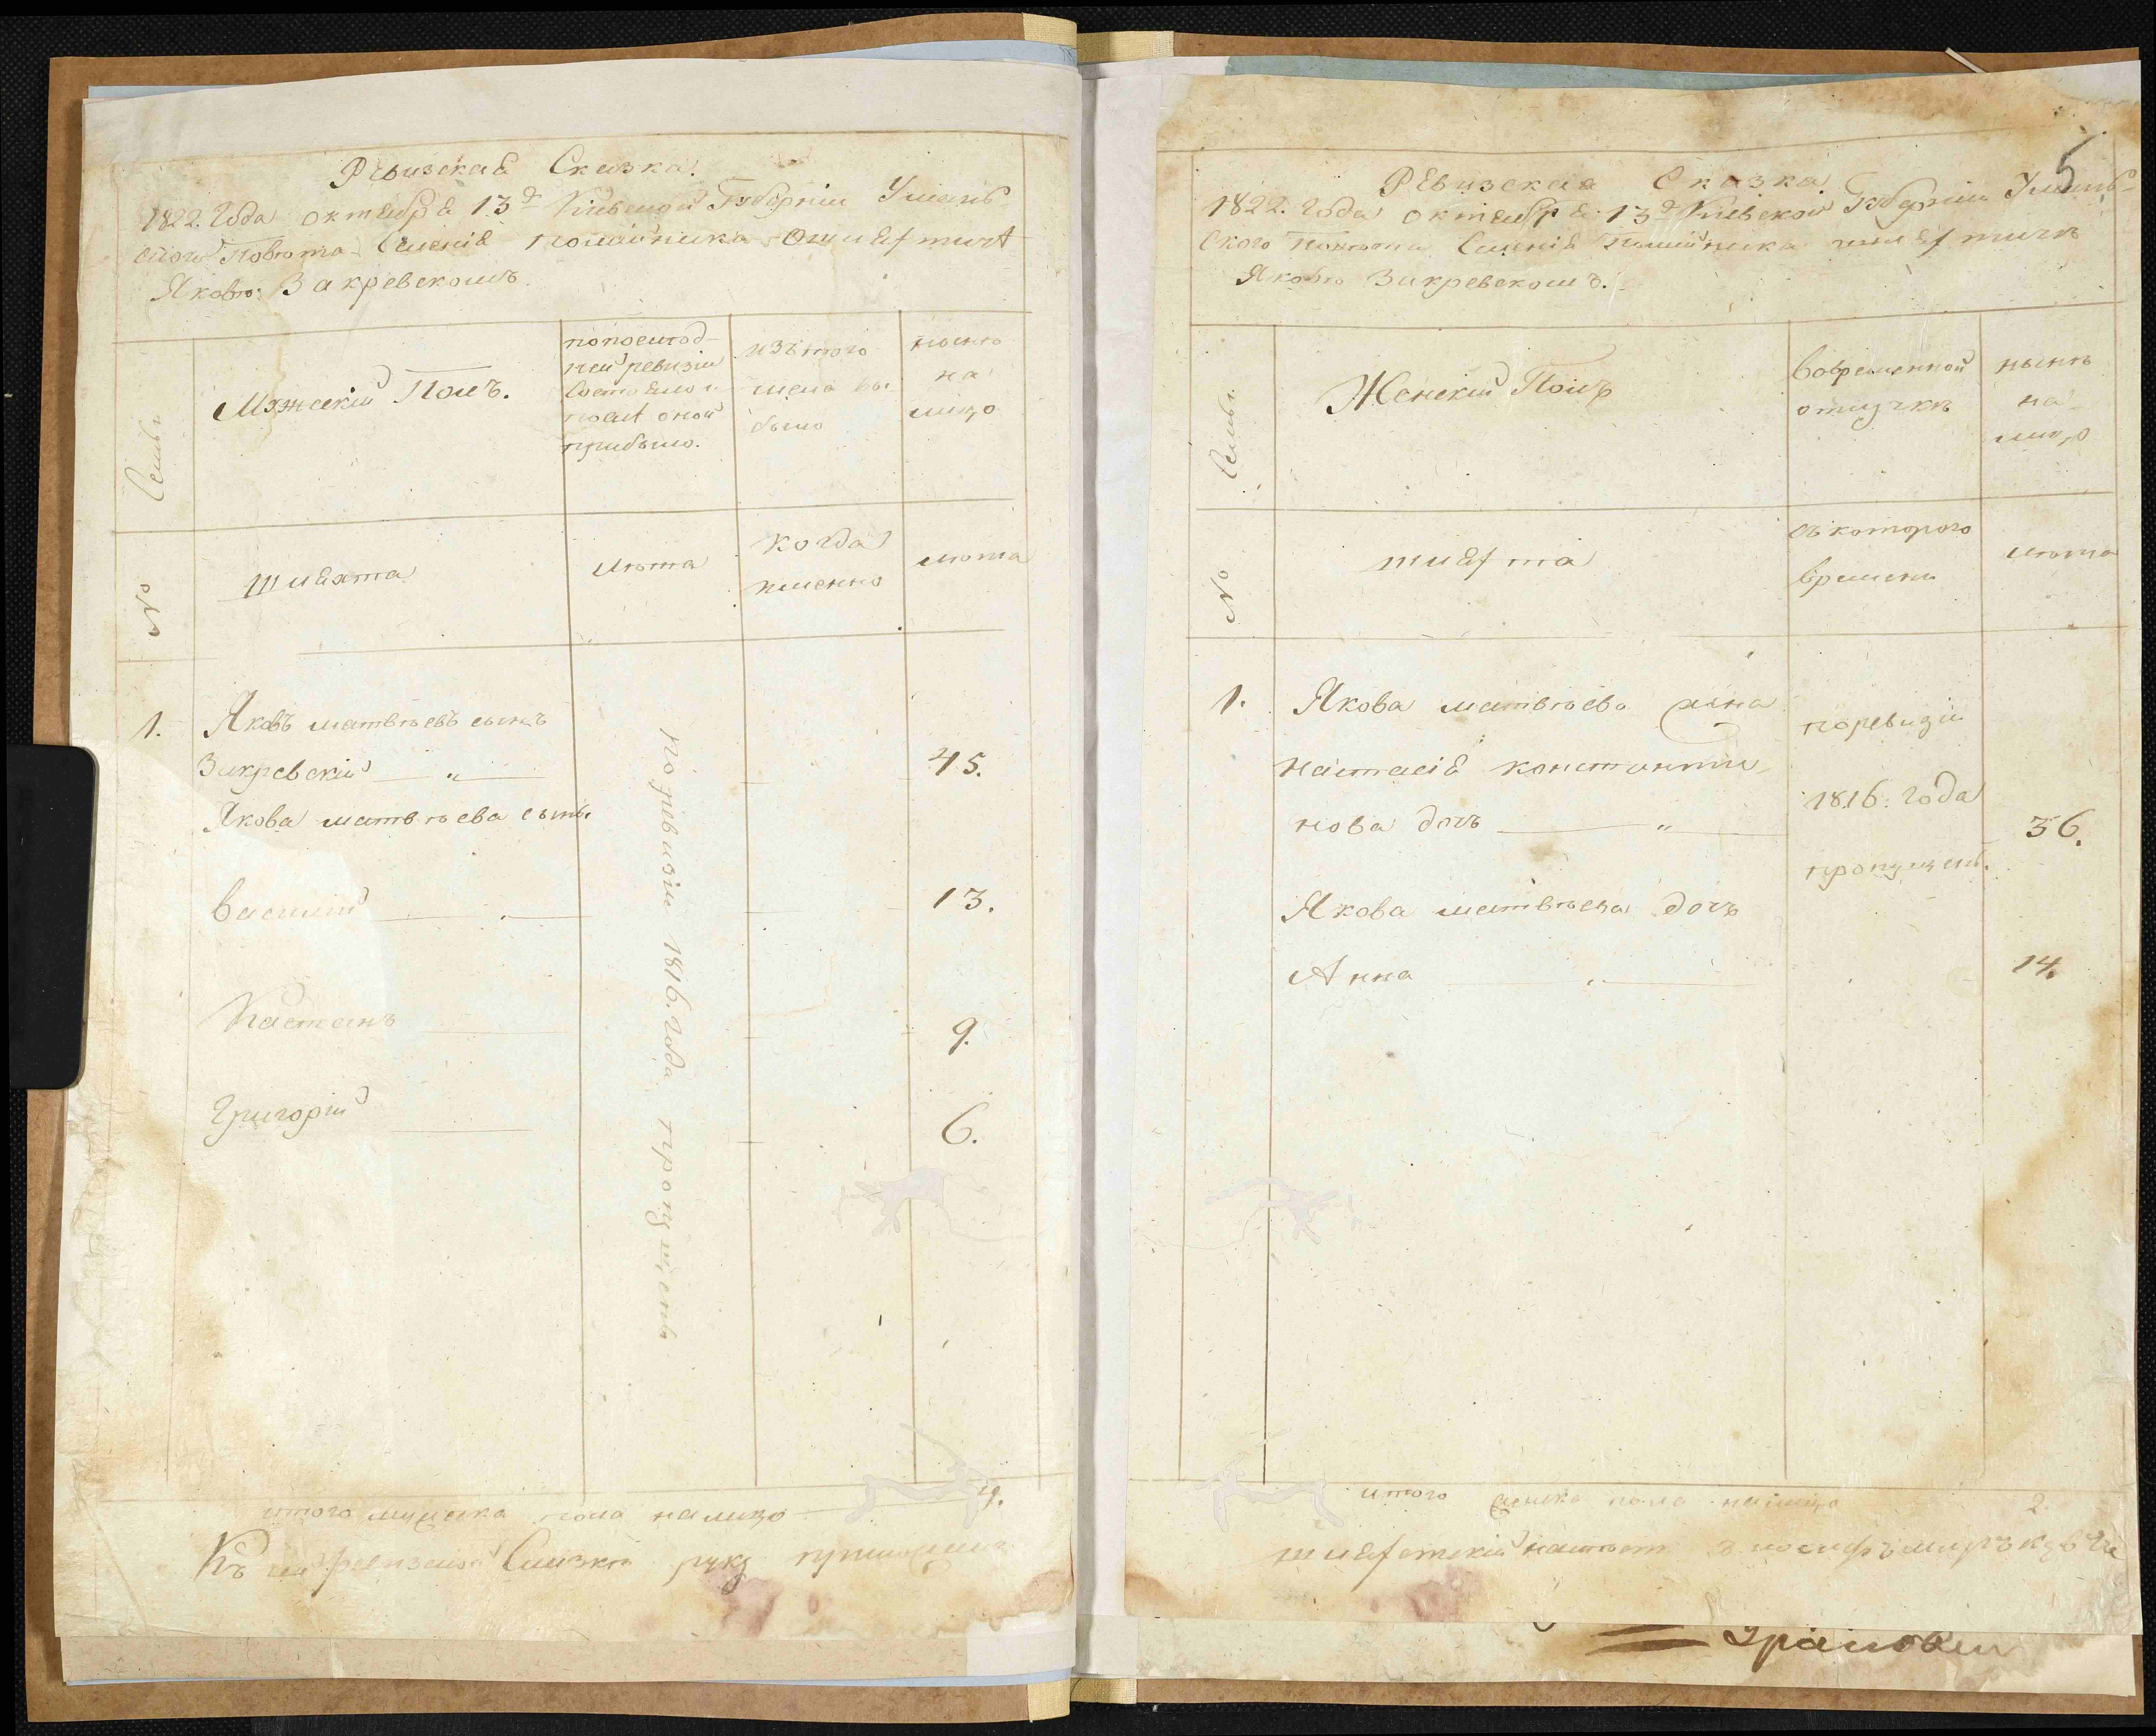 Ревизская Сказка
1822. Года октября 13д Киевской Губернии Уман
ского Повета Селения помещика о шляхтиче
Якове Закревскомъ
№ Семьи
Мужский Полъ.
попослед-
ней ревизии
состояло и
после оной
прибыло.
изътого
числа вы
было
ныне
на
лицо
шляхта
лета
когда
именно
лета
1.
Яковъ матвеевъ сынъ
Закревский 45.
Якова матвеева сыны
Василий 13.
Кастанъ 9.
Григорий 6.
поревизии 1816. Года пропущенъ
итого мужска пола налицо 4.
Къ сей ревизской Сказки руку приложилъ
5
Ревизская Сказка
1822. Года октября 13д Киевской Губернии Уман
ского Повета Селения Помещика шляхтиче
Якове Закревскомъ.
№ Семьи
Женский Полъ
вовременной
отлучке
ныне
на
лицо
шляхта
съ которого
времени
лета
1.
Якова матвеева жена
настасия константи
нова дочь 36.
поревизии
1816. Года
пропущены.
Якова матвеева дочь
Анна 14.
итого женска пола налицо 2.
шляхетский